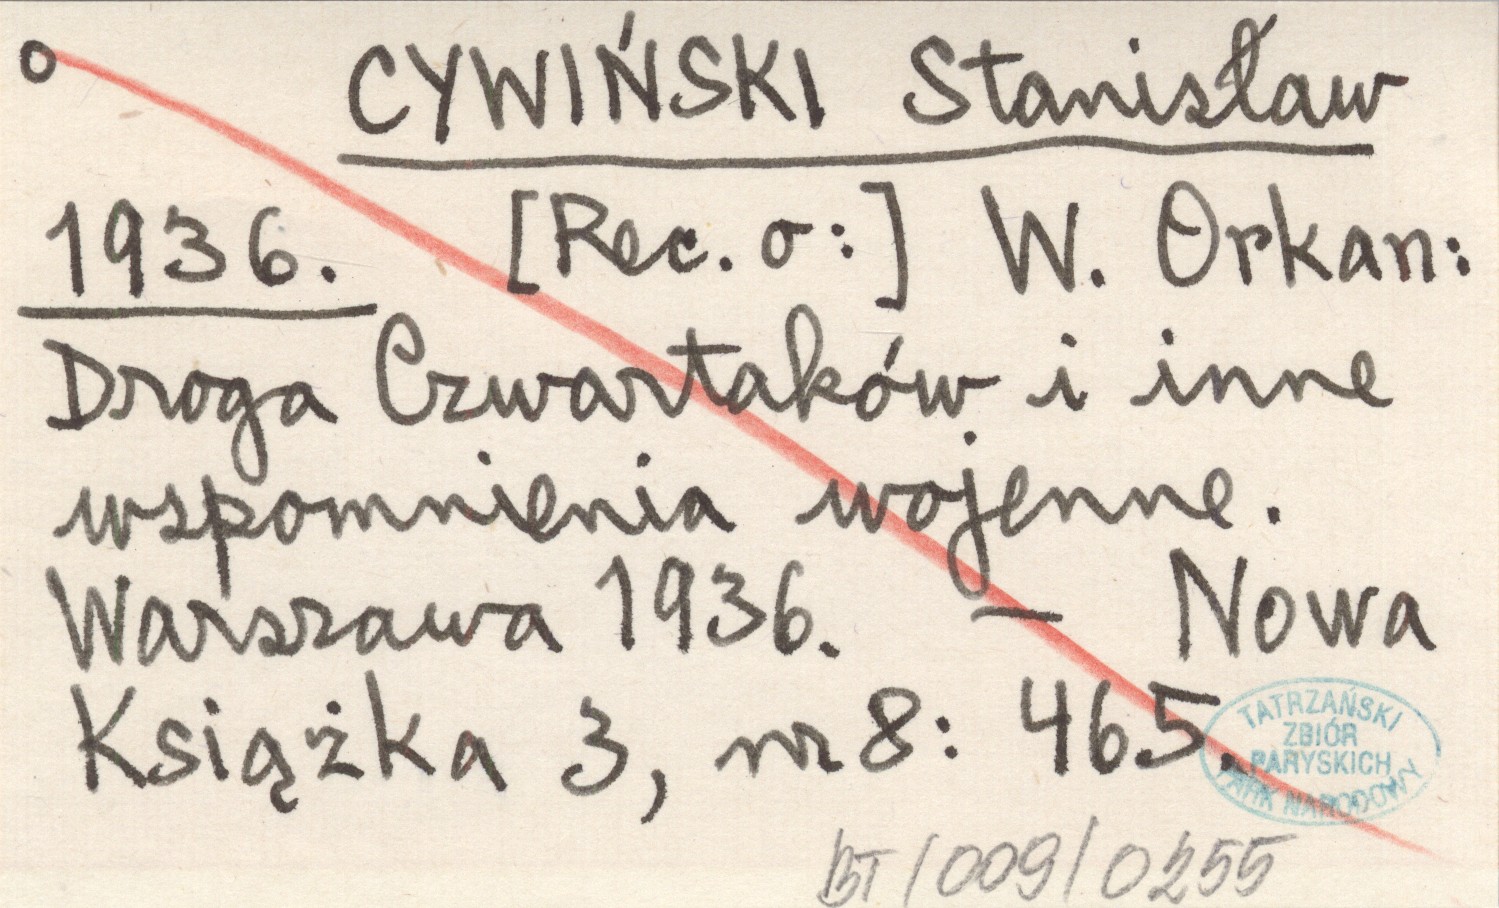 o CYWIŃSKI Stanisław
1936. [Rec. o:] W. Orkan:
Droga Czwartaków i inne
wspomnienia wojenne.
Warszawa 1936. — Nowa
Książka 3, nr 8: 465.
TATRZAŃSKI
ZBIÓR
PARYSKICH
PARK NARODOWY
BT/009/0255